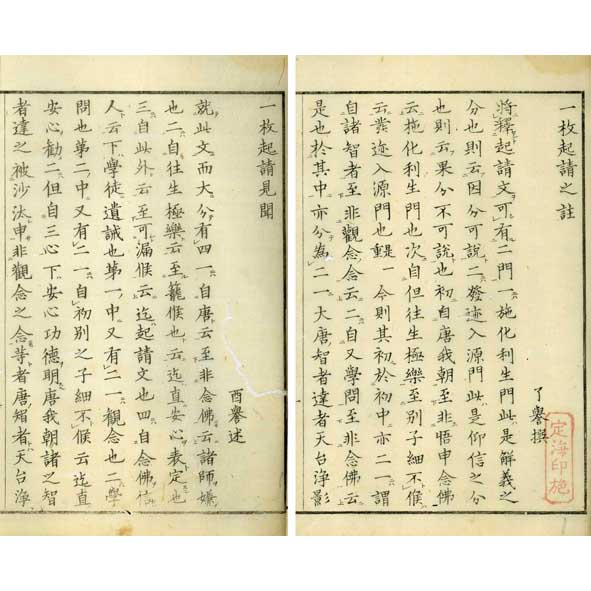 一枚起請之註
了譽撰
定海印施
將釋起請文可有二門一施化利生門此是解義之
分也則云因分可說二發迹入源門此是仰信之分
也則云果分不可說也初自唐我朝至非悟申念佛
云施化利生門也次自但往生極樂至別子細不候
云發迹入源門也是一重今則其初於初中亦二一謂
自諸智者至非觀念念云二自又學問至非念佛云
是也於其中亦分為二一大唐智者達者天台淨影
一枚起請見聞
酉譽述
就此文而大分有四一自唐云至非念佛云諸師嫌
也二自往生極樂云至籠候也云迄直安心表定也
三自此外云至可漏候云迄起請文也四自念佛信
人云下學徒遺誡也第一中又有二一觀念也二學
問也第二中又有二一自初別之子細不候云迄直
安心勸二但自三心下安心功德明唐我朝諸之智
者達之被沙汰申非觀念之念等者唐智者天台淨